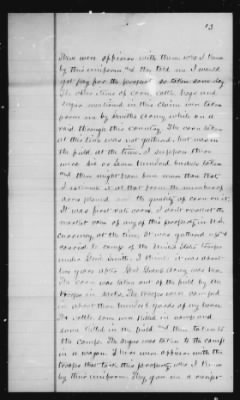 13
There were officers with them who I knew
by their uniform and they told me I would
get pay for the property so taken some day
The other items of corn, cattle hogs and
sugar mentioned in this claim was taken
from me by Smiths Army, while on a
raid through this country. The corn taken
at this time was not gathered, but was in
the field, at the time. I suppose there
were six or seven hundred bushels taken
and there might have been more than that
I estimate it at that from the number of
acres planted and the quality of corn on it.
It was first rate corn. I don't recollect the
market value of any of this property in U.S.
currency at the time. It was gathered up &
carried to camp of the United States troops
under Genl Smith. I think it was about
two years after
The corn was taken out of the field by the
troops in sacks. The troops were camped
about three hundred yards of my house
The cattle some was killed in camp and
some killed in the field and then taken to
the camp. The sugar was taken to the camp
in a wagon. There were officers with the
troops that took this property, who I knew
by their uniform. They gave me a